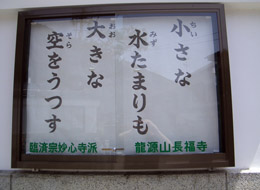 小さな
水たまりも
大きな
空をうつす
龍源山長福寺
臨済宗妙心寺派